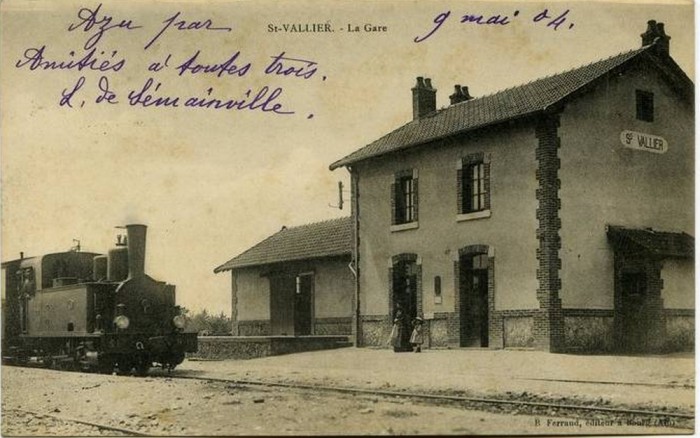 Azu par
St-VALLIER. - La Gare
9 mai 04.
Amitiés à toutes trois.
L. de Sémainville.
St VALLIER
Ferrand, éditeur à